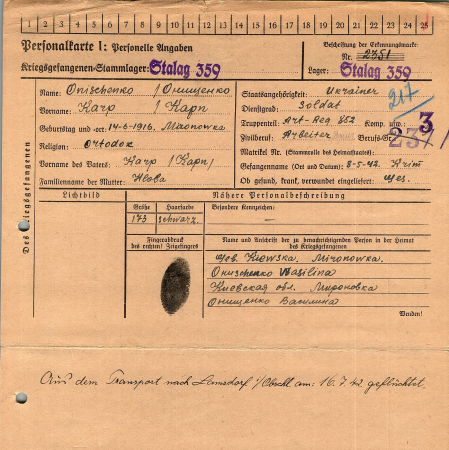 1 2 3 4 5 6 7 8 9 10 11 12 13 14 15 16 17 18 19 20 21 22 23 24 25
Personalkarte I: Personelle Angaben
Kriegsgefangenen-Stammlager: Stalag 359
Beschriftung der Erkennungsmarke:
Nr. 2351
Lager: Stalag 359
Des Kriegsgefangenen
Name: Onischenko / Онищенко
Vorname: Karp / Карп
Geburtstag und -ort: 14-6-1916, Mironowka
Religion: Ortodox
Vorname des Vaters: Karp / Карп /
Familienname der Mutter:
Staatsangehörigkeit: Ukrainer
Dienstgrad: Soldat
Truppenteil: Art-Reg 852 Komp. usw.: 3
Zivilberuf: Arbeiter Berufs-Gr.
217
237/
Matrikel Nr. (Stammrolle des Heimatstaates)
Gefangennahme (Ort und Datum): 8-5-42. Krim
Ob gesund, krank, verwundet eingeliefert: ges.
Lichtbild
Nähere Personalbeschreibung
Größe Haarfarbe Besondere Kennzeichen:
173 schwarz. —
Fingerabdruck
des rechten! Zeigefingers
Name und Anschrift der zu benachrichtigenden Person in der Heimat
des Kriegsgefangenen
Geb. Kiewska. Mironowka.
Onischenko Wasilina
Киевская обл. Мироновка
Онищенко Василина
Wenden!
Aus dem Transport nach Lamsdorf am: 16.7.42 geflüchtet.